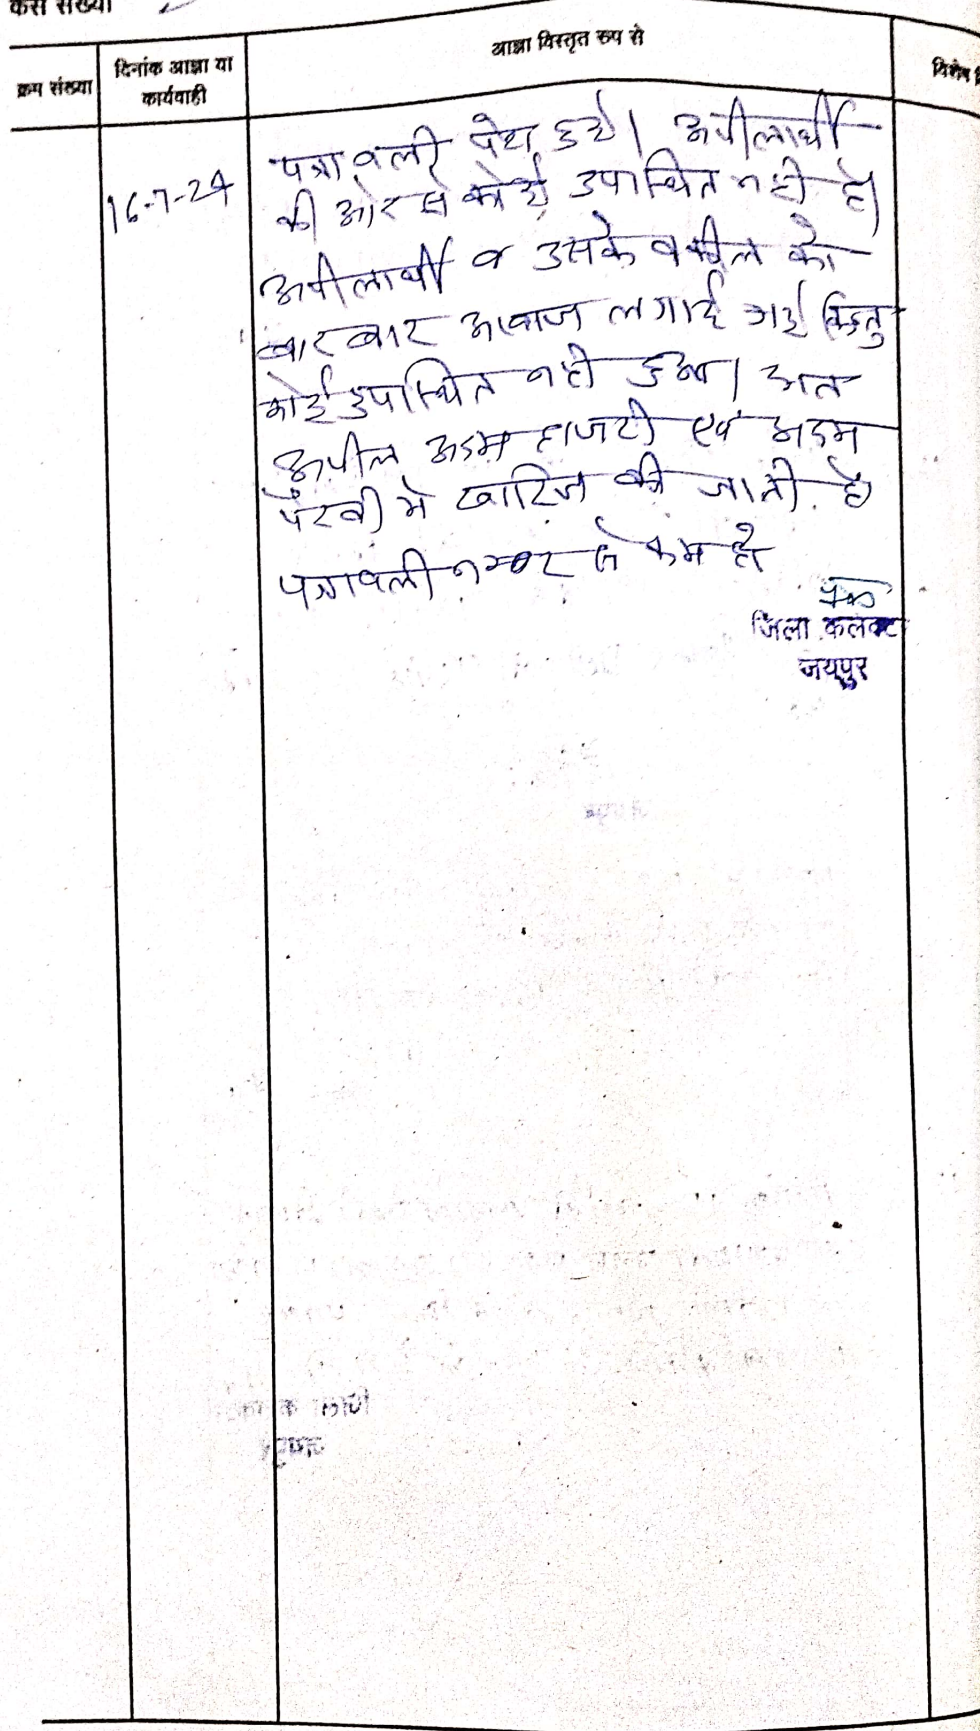 केस संख्या
क्रम संख्या
दिनांक आज्ञा या
कार्यवाही
आज्ञा विस्तृत रूप से
विशेष
16-7-24
पत्रावली पेश हुये। अपीलार्थी
की ओर से कोई उपास्थित नही है।
अपीलार्थी व उसके वकील को
बार बार आवाज लगाई गई किन्तु
कोई उपास्थित नही हुआ। अत
अपील अदम हाजरी एवं अदम
पैरवी मे खारिज की जाती है
पत्रावली नम्बर से कम हो
जिला कलक्ट
जयपुर